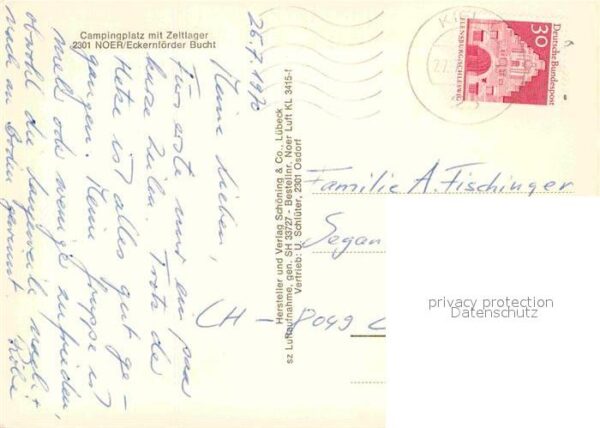 Campingplatz mit Zeltlager
2301 NOER/Eckernförder Bucht
26.7.1970
Meine Lieben,
Fürs erste nur ein paar
kurze Zeilen. Trotz der
Hetze ist alles gut ge-
gangen. Meine Gruppe ist
mehr oder weniger zufrieden,
obwohl die Langeweile
auch an Boden gewinnt.
Hersteller und Verlag Schöning & Co., Lübeck
sz Luftaufnahme, gen. SH 33727 - Bestellnr. Noer Luft KL 3415-1
Vertrieb: U. Schlüter, 2301 Osdorf
KIEL
30
Deutsche Bundespost
FLENSBURG/SCHLESWIG
Familie A. Fischinger
Segan
CH - 8049
privacy protection
Datenschutz